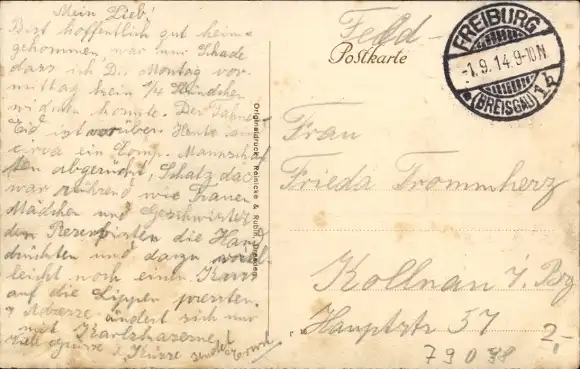 Mein Lieb!
Bist hoffentlich gut heim
gekommen, war nur Schade
dass ich Dir Montag vor-
mittag kein 1/4 Stündchen
widmen konnte. Der Fahnen-
Eid ist vorüber. Heute sind
circa ein Comp. Mannschaf-
ten abgerückt, Schatz das
war rührend wie Frauen
Mädchen und Geschwister
den Reservisten die Hand
drückten und dazu viel-
leicht noch einen Kuss
auf die Lippen pressten.
Adresse ändert sich nur
mit Karlskaserne
Viele Grüsse & Küsse sendet
Feld-
Postkarte
FREIBURG
-1.9.14.9-10N.
(BREISGAU) 1b
Frau
Frieda Trommherz
Kollnau i/Bg
Hauptstr 57
2,-
79098
Originaldruck: Reinicke & Rubin, Dresden